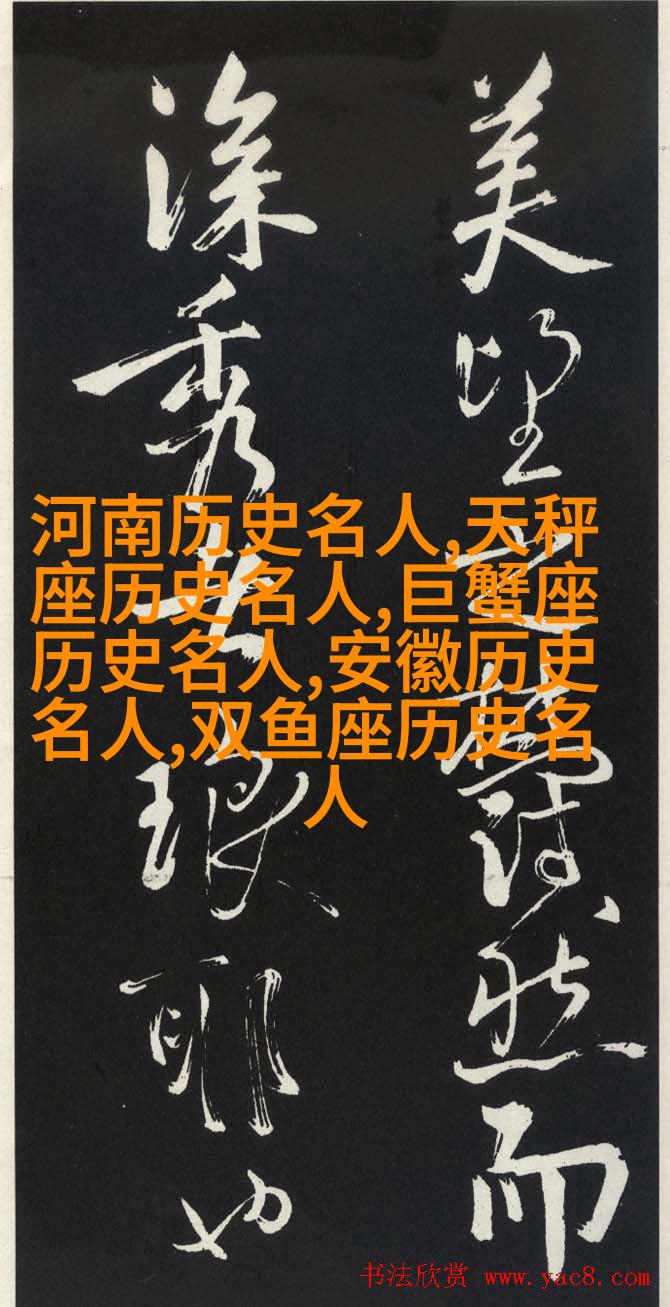 美望之蔚然而
深秀者琅耶也
河南历史名人,天秤
座历史名人,巨蟹座
历史名人,安徽历史
名人,双鱼座历史名
人
书法欣赏 www.yac8.com